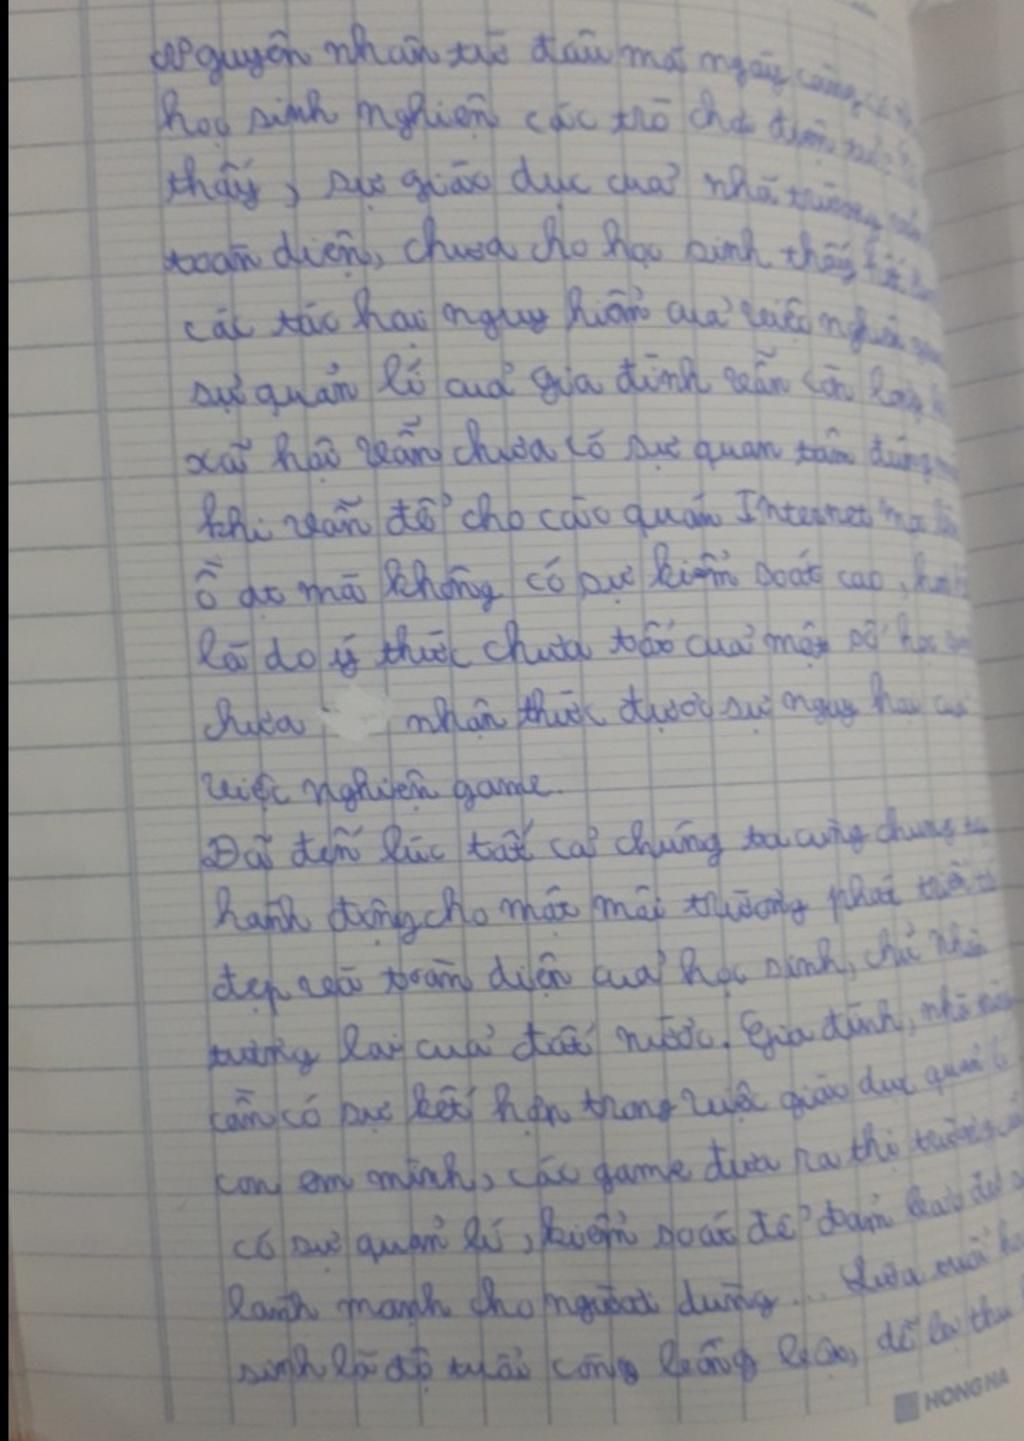 Nguyên nhân từ đâu mà ngày càng
học sinh nghiện các trò chơi điện
thấy, sự giáo dục của nhà trường
toàn diện, chưa cho học sinh thấy
các tác hại nguy hiểm của việc nghiện
sự quản lí của gia đình vẫn còn
xã hội vẫn chưa có sự quan tâm đúng
khi vẫn để cho các quán Internet mọc
ồ ạt mà không có sự kiểm soát cao,
là do ý thức chưa tốt của một số học
chưa nhận thức được sự nguy hại của
việc nghiện game.
Đã đến lúc tất cả chúng ta cùng chung
hành động cho một môi trường phát triển
đẹp và toàn diện của học sinh, chủ nhân
tương lai của đất nước. Gia đình, nhà
cần có sự kết hợp trong việc giáo dục quản
con em mình, các game đưa ra thị trường
có sự quản lí, kiểm soát để đảm bảo
lành mạnh cho người dùng... Lứa tuổi
sinh là độ tuổi
HONG HA